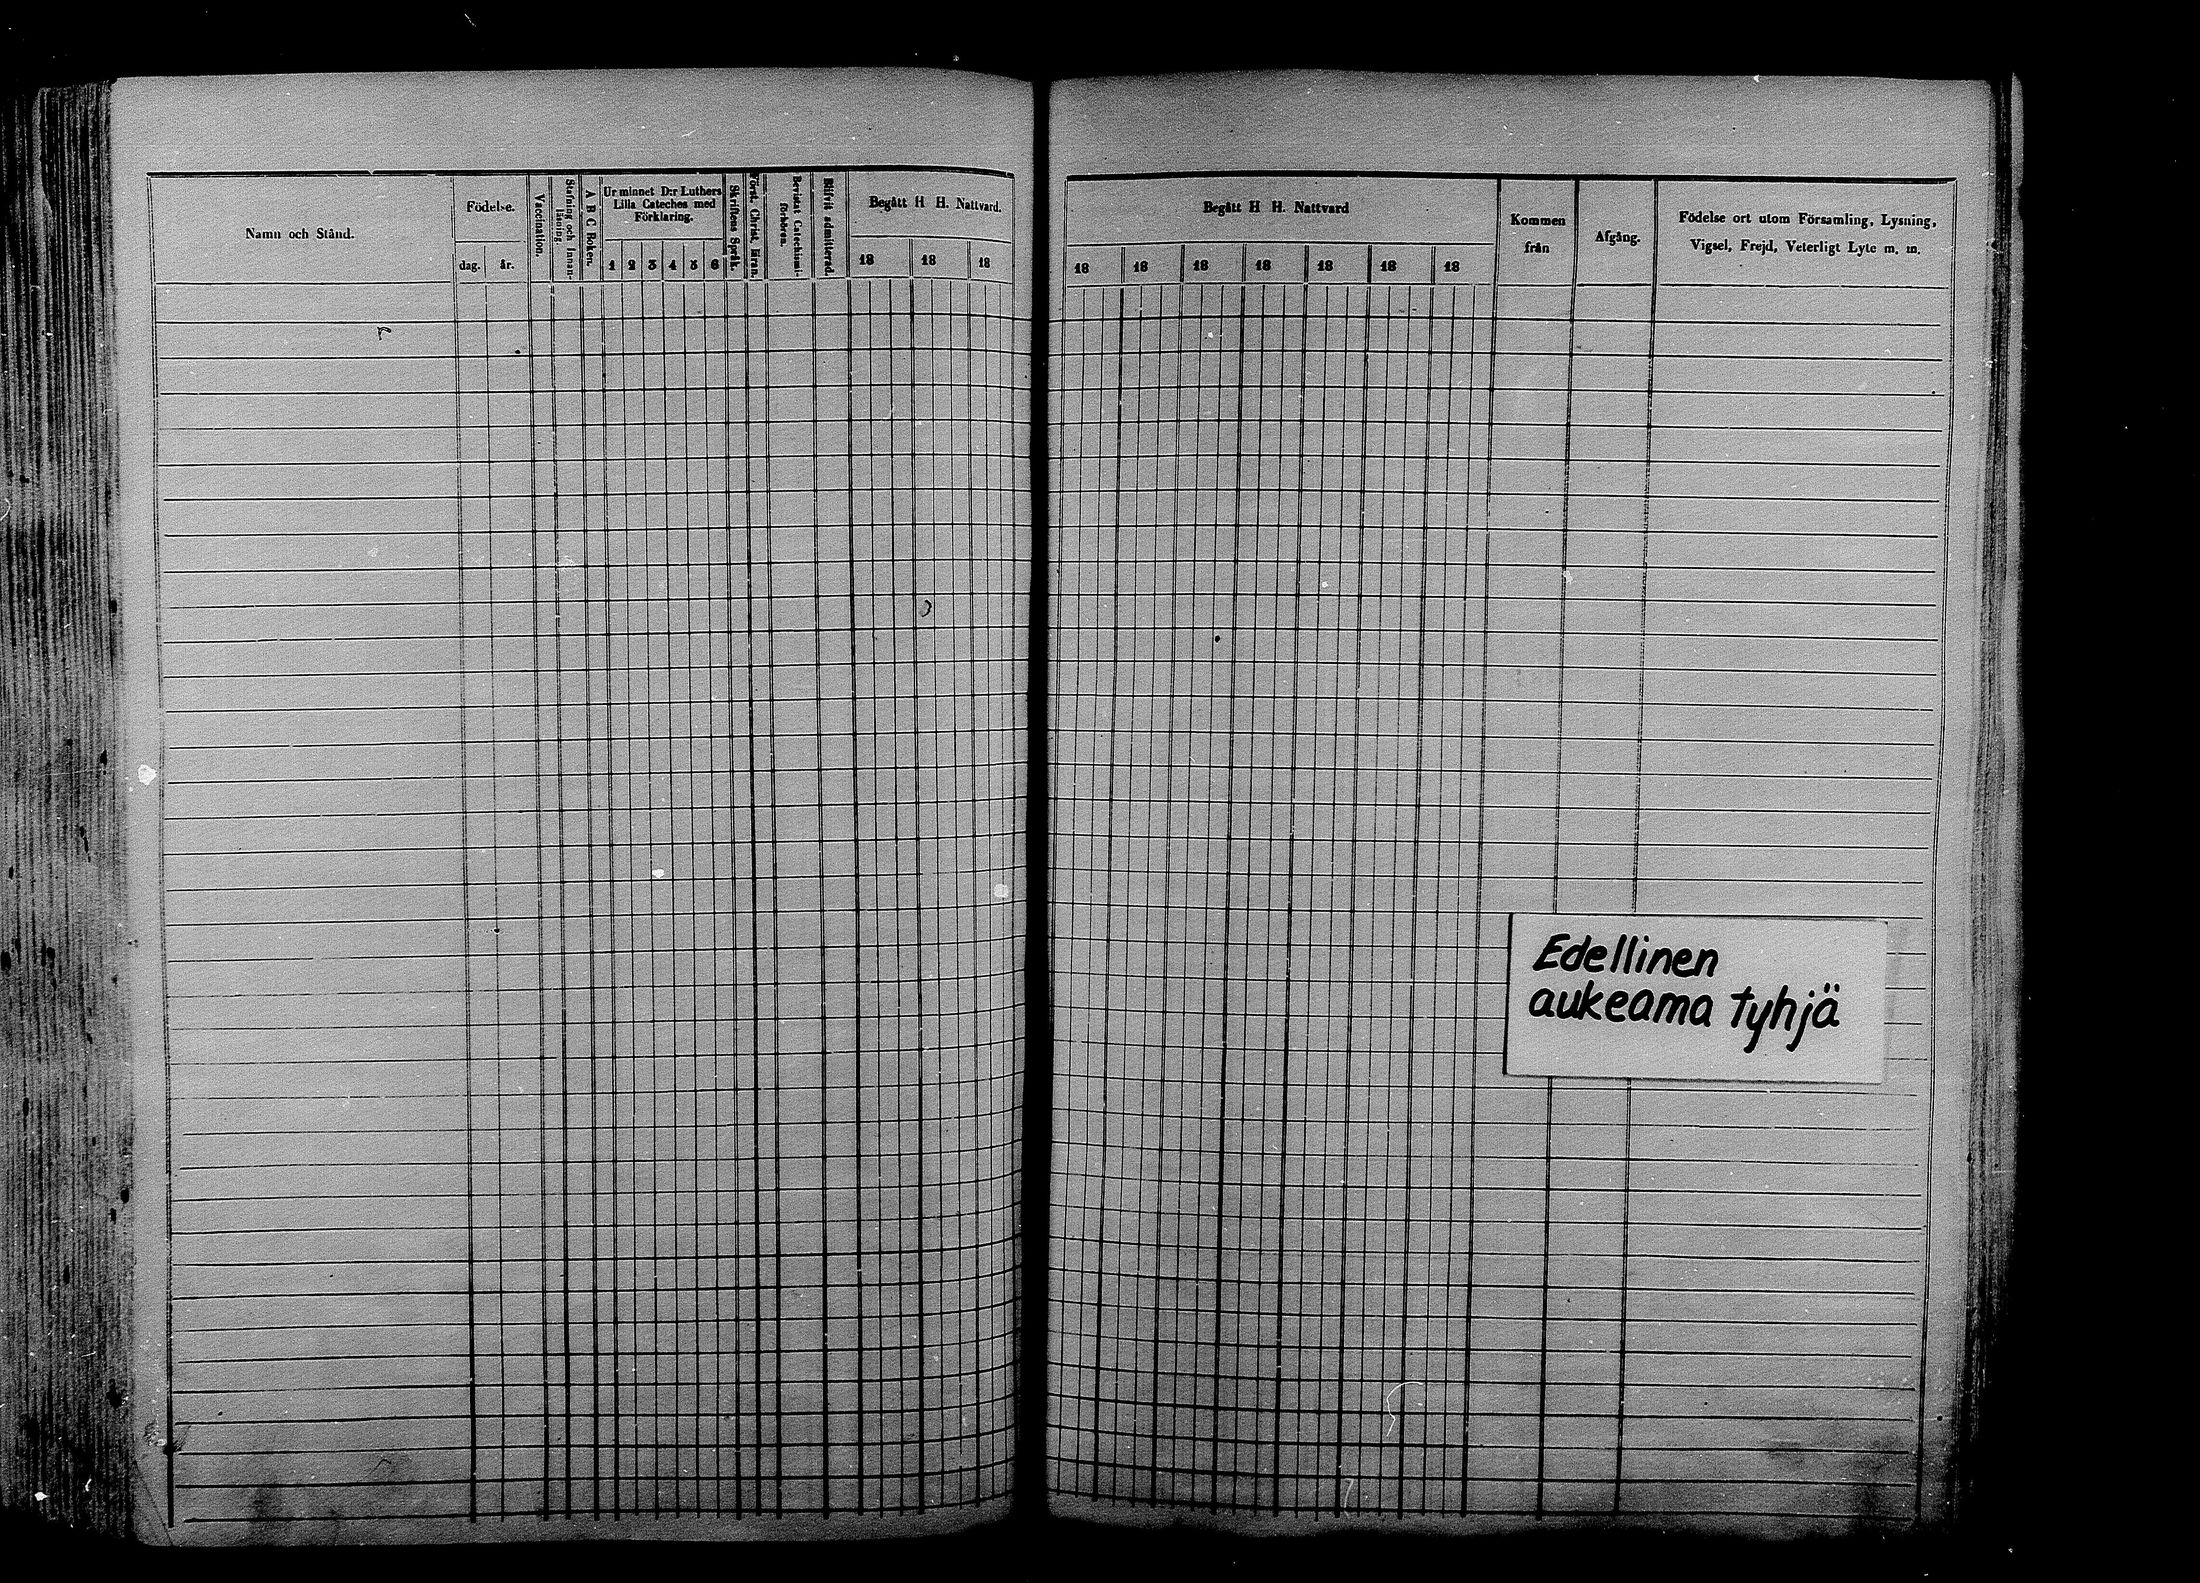 Namn och Stånd.
Födelse.
dag.
år.
Vaccination.
Stafning och Innan-
läsning.
A B C Boken.
Ur minnet D:r Luthers
Lilla Cateches med
Förklaring.
1 2 3 4 5 6
Skriftens Språk.
Först. Christ. läran.
Bevistat Catechismi-
förhören.
Blifvit admitterad.
Begått H H. Nattvard.
18 18 18
Begått H H. Nattvard
18 18 18 18 18 18 18
Kommen
från
Afgång.
Födelse ort utom Församling, Lysning,
Vigsel, Frejd, Veterligt Lyte m. m.
Edellinen
aukeama tyhjä